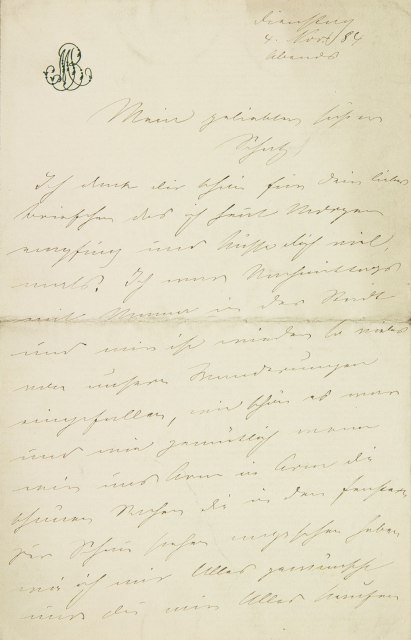 Dienstag
4. Nov. 84
Abends
Mein geliebter süsser
Schatz!
Ich danke dir schön für Dein liebes
Briefchen das ich heut Morgen
empfing und küsse dich viel
mals. Ich war Nachmittags
mit Mama in der Stadt
und mir ist wieder so vieles
von unsern Wanderungen
eingefallen, wie schön es war
und wie gemütlich wenn
wir uns Arm in Arm die
schönen Sachen die in den Fenstern
zur Schau stehen angesehen haben
wie ich mir Alles gewünscht
und du mir Alles kaufen